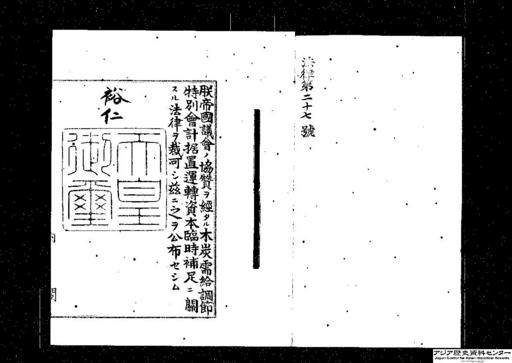 法律第二十七號
朕帝國議會ノ協贊ヲ經タル木炭需給調節
特別會計据置運轉資本臨時補足ニ關
スル法律ヲ裁可シ茲ニ之ヲ公布セシム
裕仁
天皇
御璽
アジア歴史資料センター
Japan Center for Asian Historical Records